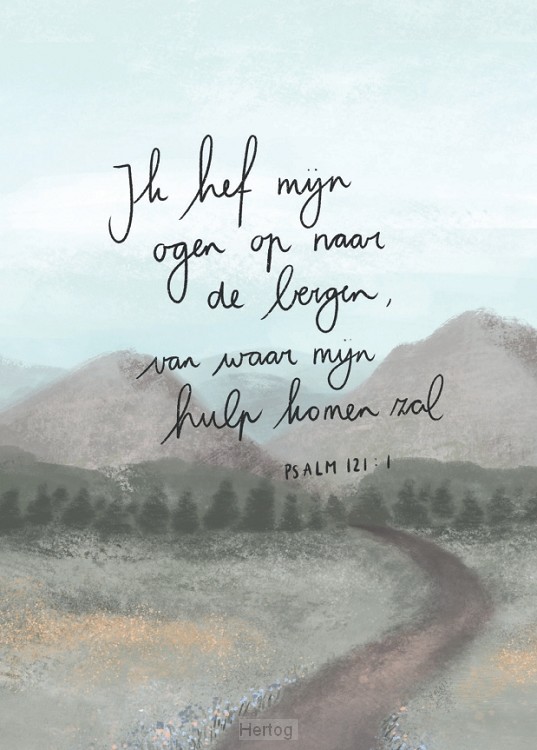 Ik hef mijn
ogen op naar
de bergen,
van waar mijn
hulp komen zal
PSALM 121:1
Hertog